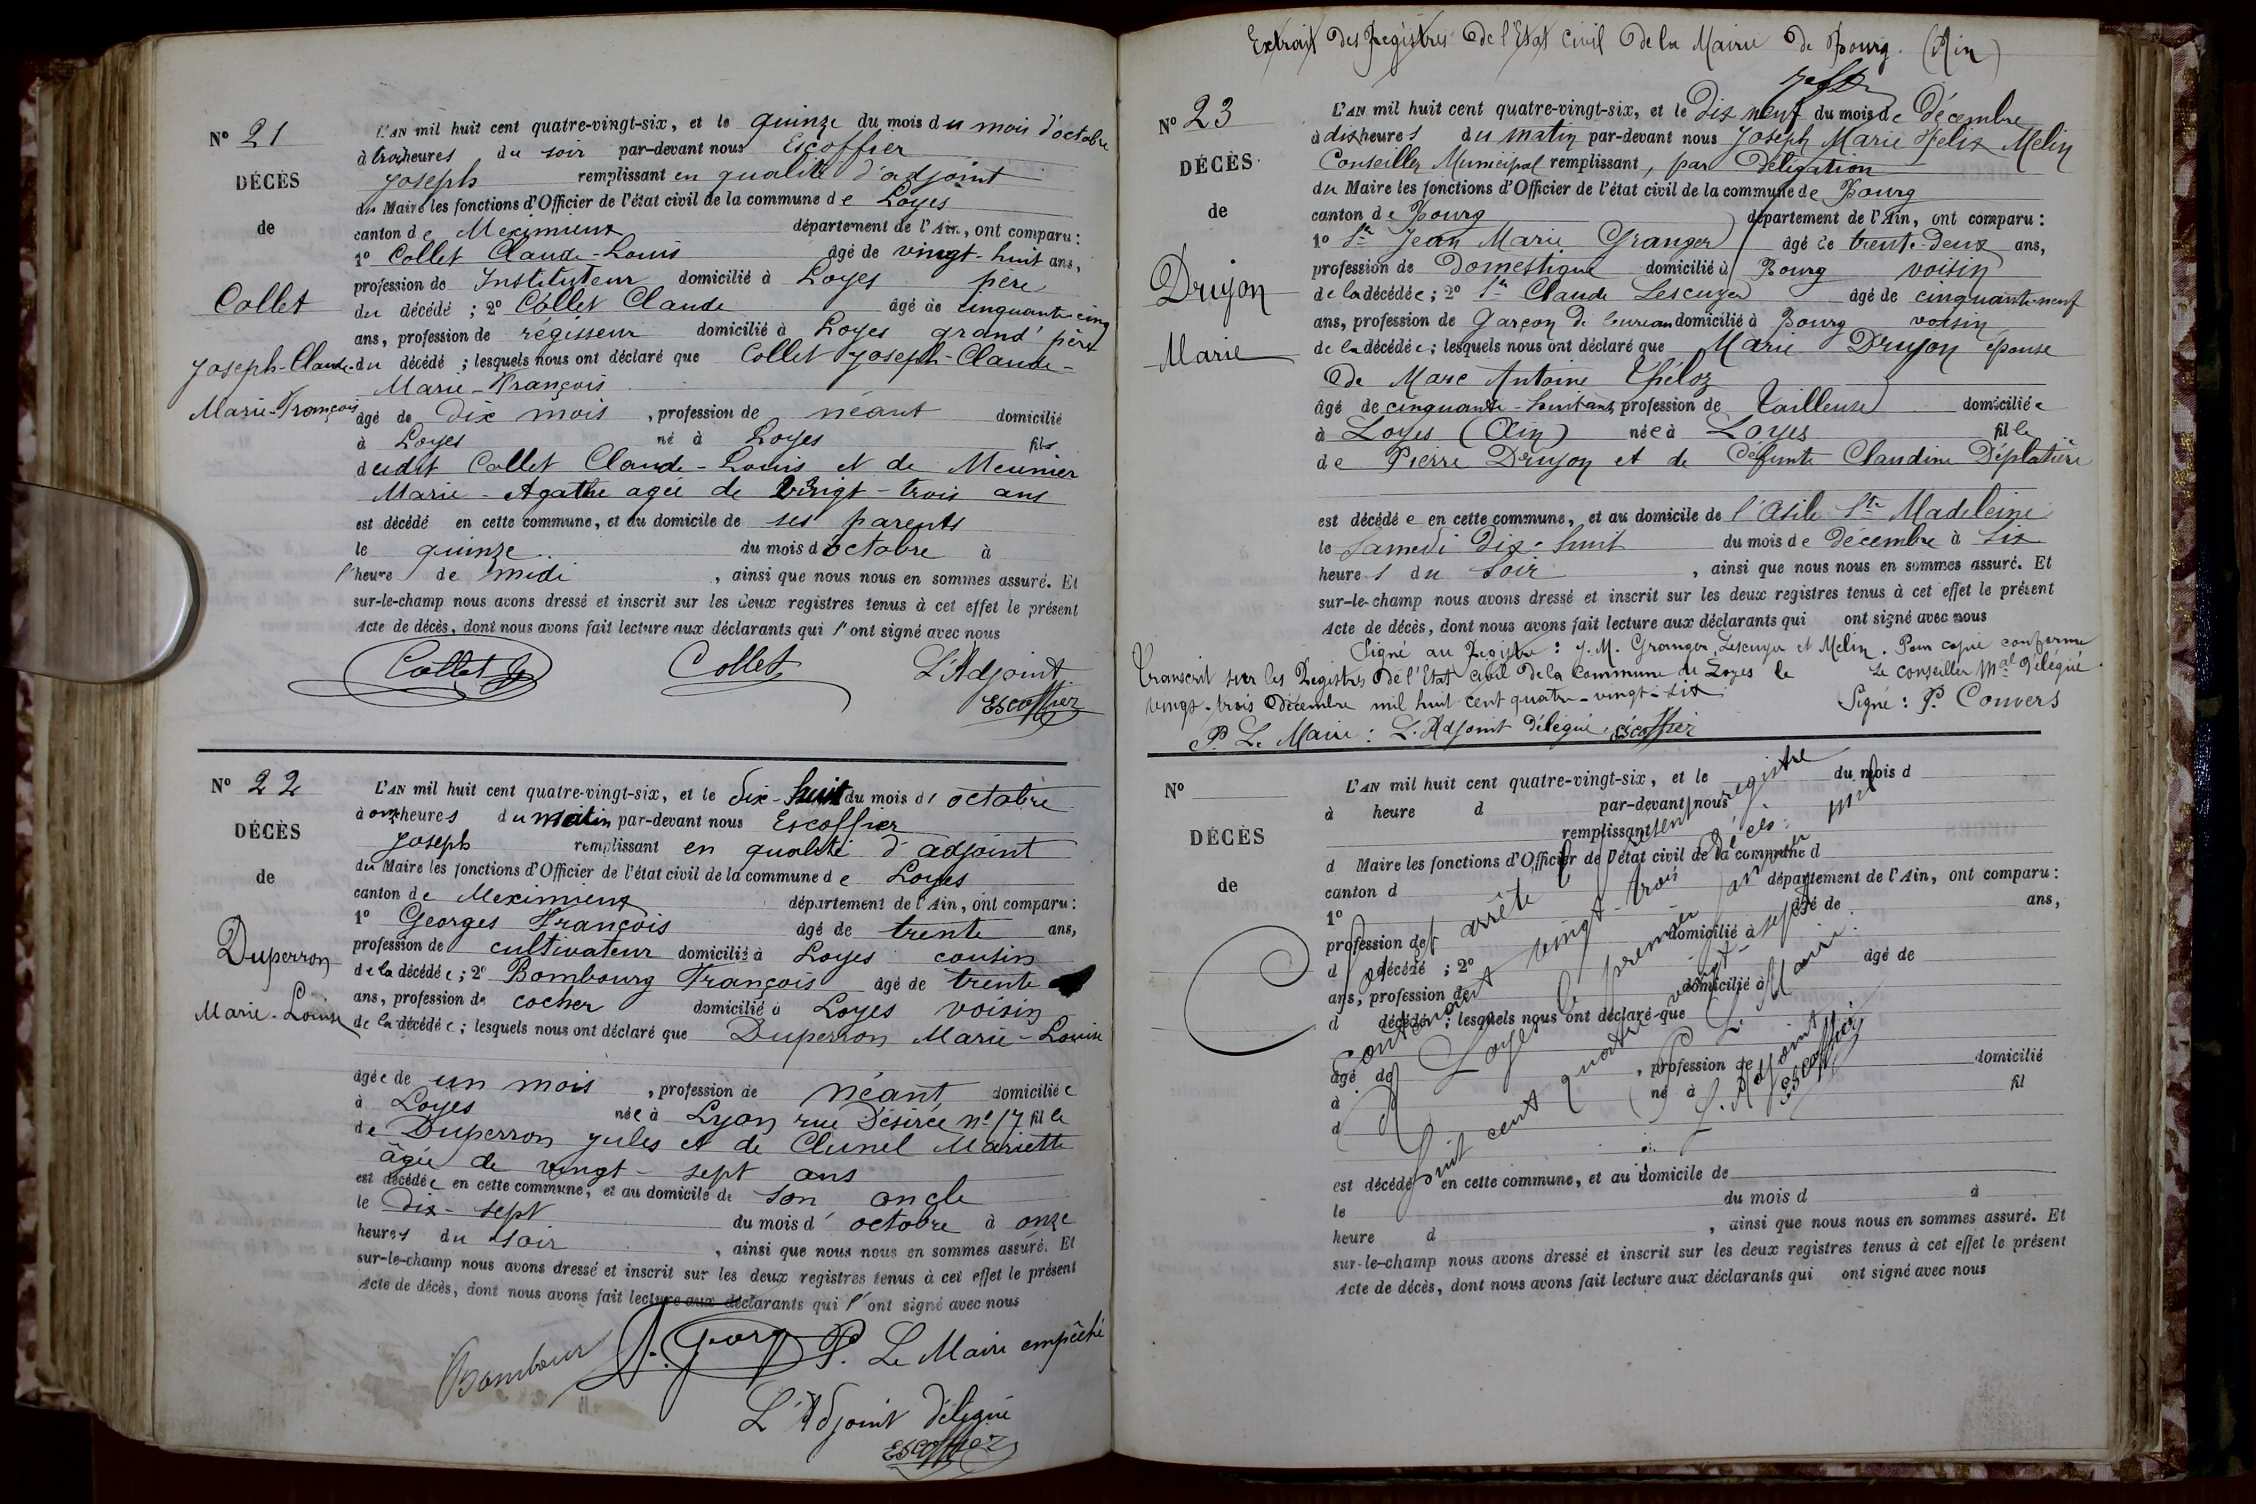 Nº 21
DÉCÈS
de
Collet
Joseph-Claude-
Marie-François
L'AN mil huit cent quatre-vingt-six, et le quinze du mois du mois d'octobre
à trois heures du soir par-devant nous Escoffier
Joseph remplissant en qualité d'adjoint
du Maire les fonctions d'Officier de l'état civil de la commune de Loyes
canton de Meximieux département de l'Ain, ont comparu :
1º Collet Claude-Louis âgé de vingt-huit ans,
profession de Instituteur domicilié à Loyes père
du décédé ; 2º Collet Claude âgé de cinquante-cinq
ans, profession de régisseur domicilié à Loyes grand'père
du décédé ; lesquels nous ont déclaré que Collet Joseph-Claude-
Marie-François
âgé de dix mois, profession de néant domicilié
à Loyes né à Loyes fils
dudit Collet Claude-Louis et de Meunier
Marie-Agathe agée de vingt-trois ans
est décédé en cette commune, et au domicile de ses parents
le quinze du mois d'octobre à
l'heure de midi, ainsi que nous nous en sommes assuré. Et
sur-le-champ nous avons dressé et inscrit sur les deux registres tenus à cet effet le présent
Acte de décès, dont nous avons fait lecture aux déclarants qui l'ont signé avec nous
Collet Collet L'Adjoint
Escoffier
Nº 22
DÉCÈS
de
Duperron
Marie-Louise
L'AN mil huit cent quatre-vingt-six, et le dix-huit du mois d' octobre
à onze heures du matin par-devant nous Escoffier
Joseph remplissant en qualité d'adjoint
du Maire les fonctions d'Officier de l'état civil de la commune de Loyes
canton de Meximieux département de l'Ain, ont comparu :
1º Georges François âgé de trente ans,
profession de cultivateur domicilié à Loyes cousin
de la décédée ; 2º Bombourg François âgé de trente
ans, profession de cocher domicilié à Loyes voisin
de la décédée ; lesquels nous ont déclaré que Duperron Marie-Louise
âgée de un mois, profession de néant domiciliée
à Loyes née à Lyon rue Désirée nº 17 fille
de Duperron Jules et de Clunel Mariette
âgée de vingt-sept ans
est décédée en cette commune, et au domicile de son oncle
le dix-sept du mois d' octobre à onze
heures du soir, ainsi que nous nous en sommes assuré. Et
sur-le-champ nous avons dressé et inscrit sur les deux registres tenus à cet effet le présent
Acte de décès, dont nous avons fait lecture aux déclarants qui l'ont signé avec nous
P. Le Maire empêché
L'Adjoint délégué
Escoffier
Extrait des Régistres de l'Etat civil de la Mairie de Bourg. (Ain)
Nº 23
DÉCÈS
de
Drujon
Marie
L'AN mil huit cent quatre-vingt-six, et le Dix neuf du mois de Décembre
à dix heures du matin par-devant nous Joseph Marie Félix Melin
Conseiller Municipal remplissant, par Délégation
du Maire les fonctions d'Officier de l'état civil de la commune de Bourg
canton de Bourg département de l'Ain, ont comparu :
1º Sr Jean Marie Granger âgé de trente-deux ans,
profession de Domestique domicilié à Bourg voisin
de la décédée ; 2º Sr Claude Lescuyer âgé de cinquante-neuf
ans, profession de Garçon de bureau domicilié à Bourg voisin
de la décédée ; lesquels nous ont déclaré que Marie Drujon épouse
de Marc Antoine Théloz
âgé de cinquante-huit ans, profession de Tailleuse domiciliée
à Loyes (Ain) née à Loyes fille
de Pierre Drujon et de défunte Claudine Déplatière
est décédée en cette commune, et au domicile de l'Asile Ste Madeleine
le Samedi Dix-huit du mois de Décembre à Six
heures du Soir, ainsi que nous nous en sommes assuré. Et
sur-le-champ nous avons dressé et inscrit sur les deux registres tenus à cet effet le présent
Acte de décès, dont nous avons fait lecture aux déclarants qui ont signé avec nous
Signé au Registre : J. M. Granger, Lescuyer et Melin. Pour copie conforme
Le Conseiller Mal Délégué.
Signé : P. Convers
Transcrit sur les Registres de l'Etat civil de la commune de Loyes le
vingt-trois Décembre mil huit cent quatre-vingt-six.
P. Le Maire : L'Adjoint Délégué Escoffier
Nº
DÉCÈS
de
L'AN mil huit cent quatre-vingt-six, et le du mois d
à heure d par-devant nous
remplissant
d Maire les fonctions d'Officier de l'état civil de la commune d
canton d département de l'Ain, ont comparu :
1º âgé de ans,
profession de domicilié à
d décédé ; 2º âgé de
ans, profession de domicilié à
d décédé ; lesquels nous ont déclaré que
âgé de, profession de domicilié
à né à fil
d
est décédé en cette commune, et au domicile de
le du mois d à
heure d, ainsi que nous nous en sommes assuré. Et
sur-le-champ nous avons dressé et inscrit sur les deux registres tenus à cet effet le présent
Acte de décès, dont nous avons fait lecture aux déclarants qui ont signé avec nous
Clos et arrêté le présent registre
contenant vingt-trois décès.
A Loyes le premier janvier mil
huit cent quatre vingt-sept
P. Le Maire.
L'Adjoint
Escoffier